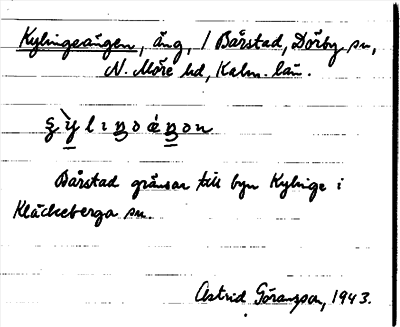 Kylingeängen, äng, / Bårstad, Dörby sn,
N. Möre hd, Kalm. län.
Bårstad gränsar till byn Kylinge i
Kläckeberga sn.
Astrid Göransson, 1943.